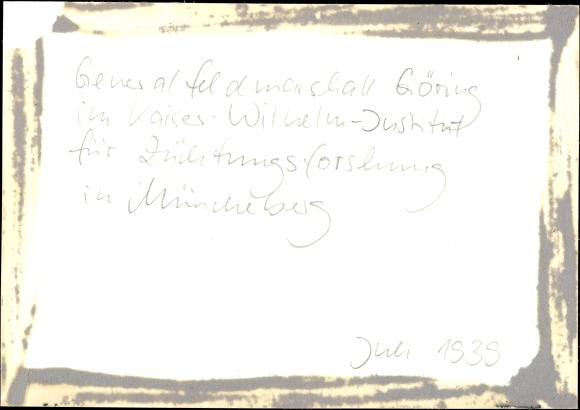 Generalfeldmarschall Göring
im Kaiser-Wilhelm-Institut
für Züchtungsforschung
in Müncheberg
Juli 1939